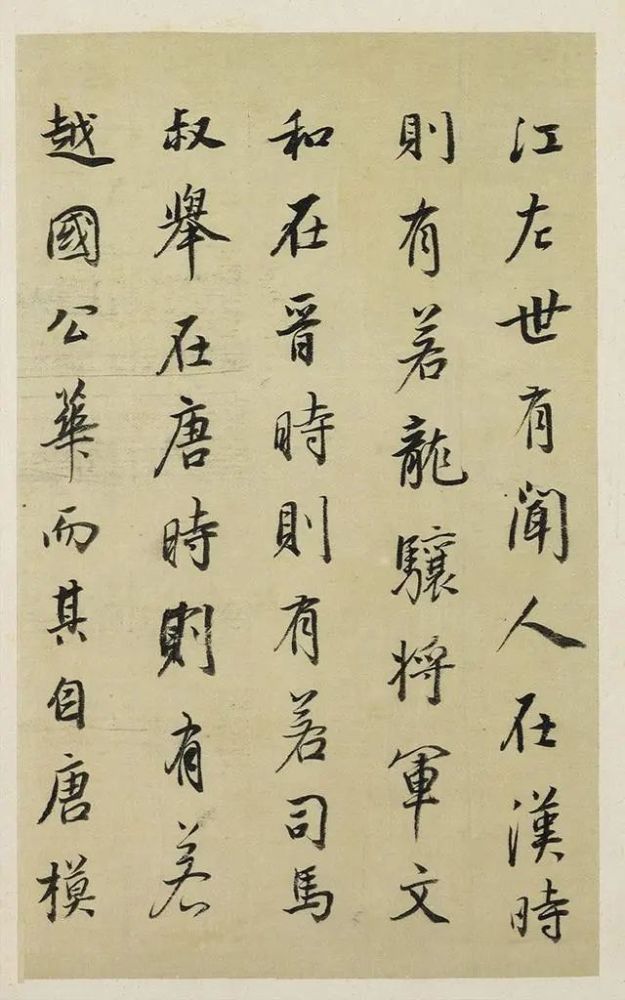 江左世有聞人在漢時
則有若龍驤將軍文
和在晉時則有若司馬
叔舉在唐時則有若
越國公華而其自唐模